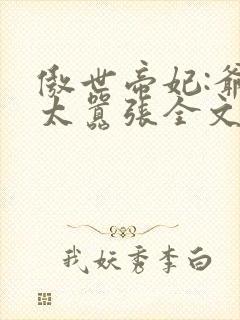 傲世帝妃:爺
太囂張全文
我妖秀李白